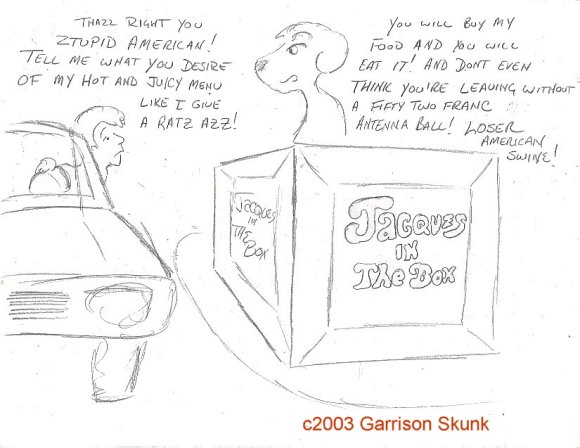 THAZZ RIGHT YOU
ZTUPID AMERICAN!
TELL ME WHAT YOU DESIRE
OF MY HOT AND JUICY MENU
LIKE I GIVE
A RATZ AZZ!
YOU WILL BUY MY
FOOD AND YOU WILL
EAT IT! AND DONT EVEN
THINK YOU'RE LEAVING WITHOUT
A FIFTY TWO FRANC
ANTENNA BALL! LOSER
AMERICAN
SWINE!
JACQUES
IN
THE
BOX
JACQUES
IN
THE BOX
c2003 Garrison Skunk